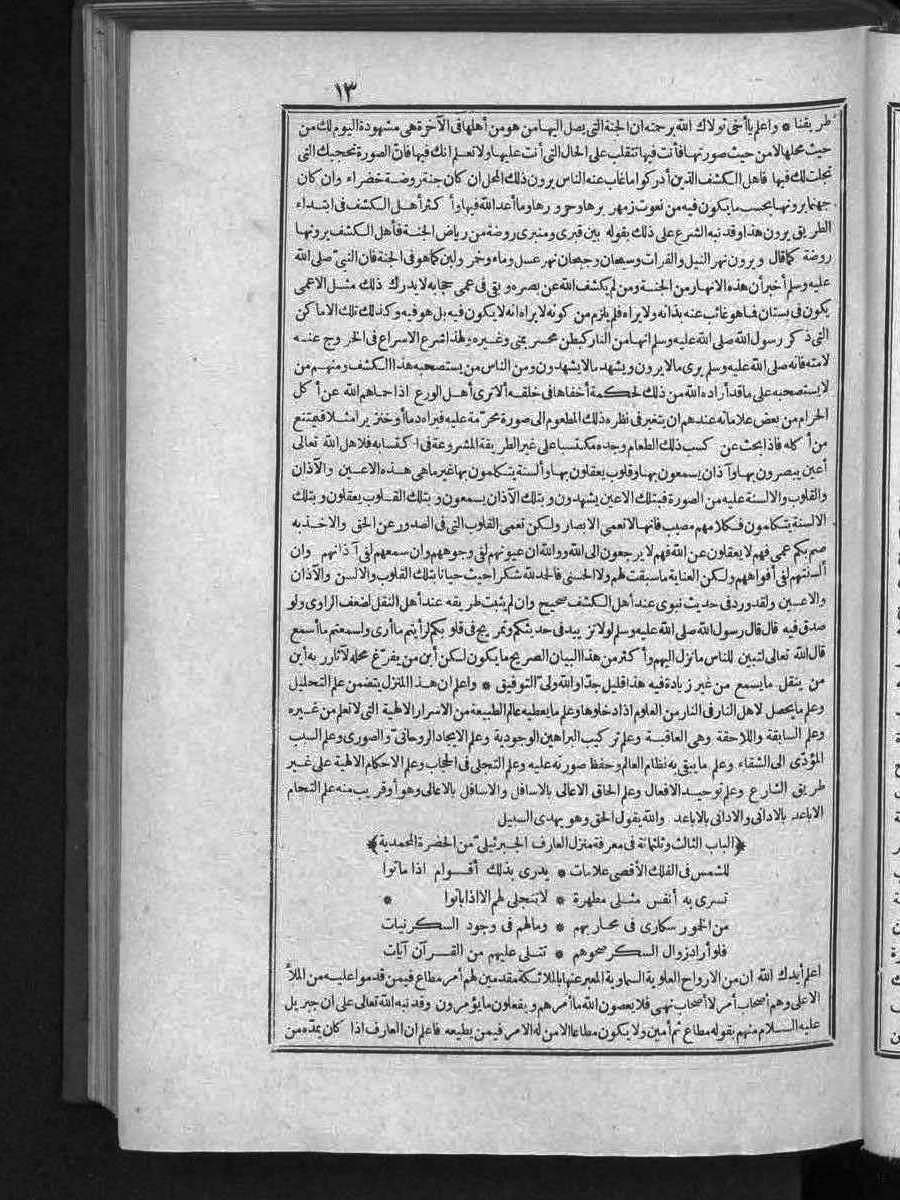 ١٣
طريقنا * واعلم يا أخي تولاك الله برحمته ان الجنة التي يصل اليها من هو من أهلها في الآخرة هي مشهودة اليوم لك من
حيث محلها لا من حيث صورتها فأنت فيها تتقلب على الحال التي أنت عليها ولا تعلم انك فيها فان الصورة تحجبك التي
تجلت لك فيها فاهل الكشف الذين أدركوا ما غاب عنه الناس يرون ذلك المحل ان كان جنة روضة خضراء وان كان
جهنم يرونها بحسب ما يكون فيه من نعوت زمهريرها وحرورها وما أعد الله فيها وأكثر أهل الكشف في ابتداء
الطريق يرون هذا وقد نبه الشرع على ذلك بقوله بين قبري ومنبري روضة من رياض الجنة فأهل الكشف يرونها
روضة كما قال ويرون نهر النيل والفرات وسيحان وجيحان نهر عسل وماء وخمر ولبن كما هو في الجنة فان النبي صلى الله
عليه وسلم أخبر أن هذه الانهار من الجنة ومن لم يكشف الله عن بصره وبقي في عمى حجابه لا يدرك ذلك مثل الاعمى
يكون في بستان فما هو غائب عنه بذاته ولا يراه فلم يلزم من كونه لا يراه انه لا يكون فيه بل هو فيه وكذلك تلك الاماكن
التي ذكر رسول الله صلى الله عليه وسلم انها من النار كبطن محسر بمنى وغيره ولهذا شرع الاسراع في الخروج عنه
لامته فانه صلى الله عليه وسلم يرى ما لا يرون ويشهد ما لا يشهدون ومن الناس من يستصحبه هذا الكشف ومنهم من
لا يستصحبه على ما قد أراده الله من ذلك لحكمة أخفاها في خلقه ألا ترى أهل الورع اذا حماهم الله عن أكل
الحرام من بعض علاماته عندهم ان يتغير في نظره ذلك المطعوم الى صورة محرمة عليه فيراه دما أو خنزيرا مثلا فيمتنع
من أكله فاذا بحث عن كسب ذلك الطعام وجده مكتسبا على غير الطريقة المشروعة في اكتسابه فلاهل الله تعالى
أعين يبصرون بها وآذان يسمعون بها وقلوب يعقلون بها وألسنة يتكلمون بها غير ما هي هذه الاعين والآذان
والقلوب والالسنة عليه من الصورة فبتلك الاعين يشهدون وبتلك الآذان يسمعون وبتلك القلوب يعقلون وبتلك
الالسنة يتكلمون فكلامهم مصيب فانها لا تعمى الابصار ولكن تعمى القلوب التي في الصدور عن الحق والاخذ به
صم بكم عمي فهم لا يعقلون عن الله فهم لا يرجعون الى الله ووالله ان عيونهم لفي وجوههم وان سمعهم لفي آذانهم وان
ألسنتهم لفي أفواههم ولكن العناية ما سبقت لهم ولا الحسنى فالحمد لله شكرا حيث حبانا بتلك القلوب والالسن والآذان
والاعين ولقد ورد في حديث نبوي عند أهل الكشف صحيح وان لم يثبت طريقه عند أهل النقل لضعف الراوي ولو
صدق فيه قال قال رسول الله صلى الله عليه وسلم لولا تزييد في حديثكم وتمريج في قلوبكم لرأيتم ما أرى ولسمعتم ما أسمع
قال الله تعالى لتبين للناس ما نزل اليهم وأكثر من هذا البيان الصريح ما يكون لكن أين من يفرغ محله لآثار ربه أين
من ينقل ما يسمع من غير زيادة فيه هذا قليل جدا والله ولي التوفيق * واعلم ان هذا المنزل يتضمن علم التحليل
وعلم ما يحصل لاهل النار في النار من العلوم اذا دخلوها وعلم ما يعطيه عالم الطبيعة من الاسرار الالهية التي لا تعلم من غيره
وعلم السابقة واللاحقة وهي العاقبة وعلم تركيب البراهين الوجودية وعلم الايجاد الروحاني والصوري وعلم السبب
المؤدي الى الشقاء وعلم ما يبقى به نظام العالم وحفظ صورته عليه وعلم التجلي في الحجاب وعلم الاحكام الالهية على غير
طريق الشارع وعلم توحيد الافعال وعلم الحاق الاعالي بالاسافل والاسافل بالاعالي وهو أو قريب منه علم التحام
الاباعد بالاداني والاداني بالاباعد والله يقول الحق وهو يهدي السبيل
﴿الباب الثالث وثلثمائة في معرفة منزل العارف الجبرئيلي من الحضرة المحمدية﴾
للشمس في الفلك الأقصى علامات * يدري بذلك أقوام اذا ماتوا
تسري به أنفس مثلي مطهرة * لا تنجلي لهم الا اذا باتوا *
من الخمور سكارى في محاربهم * وما لهم في وجود السكر نيات
فلو أراد زوال السكر صحوهم * تتلى عليهم من القرآن آيات
اعلم أيدك الله ان من الارواح العلوية السماوية المعبر عنها بالملائكة مقدمين لهم أمر مطاع فيمن قدموا عليه من الملأ
الاعلى وهم أصحاب أمر لا أصحاب نهي فلا يعصون الله ما أمرهم ويفعلون ما يؤمرون وقد نبه الله تعالى على ان جبريل
عليه السلام منهم بقوله مطاع ثم أمين ولا يكون مطاعا الا من له الامر فيمن يطيعه فاعلم ان العارف اذا كان يمده من